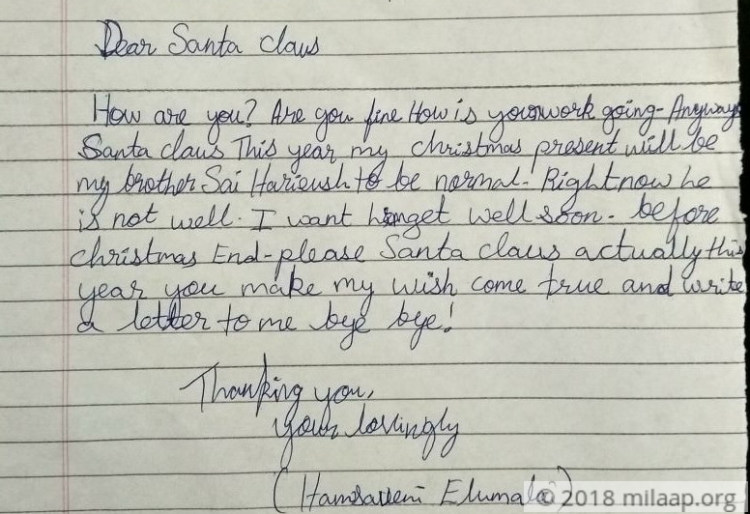 Dear Santa claus
How are you? Are you fine How is your work going- Anyway
Santa claus This year my christmas present will be
my brother Sai Harieush to be normal- Right now he
is not well. I want him get well soon- before
christmas End-please Santa claus actually this
year you make my wish come true and write
a letter to me bye bye!
Thanking you,
your lovingly
(Hamsaveni Elumalai)
© 2018 milaap.org